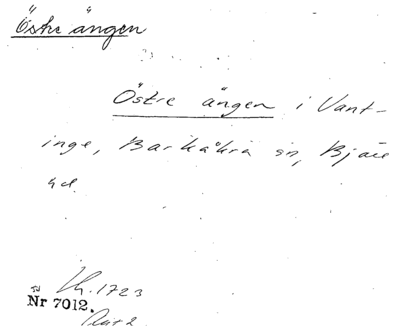 Östre ängen
Östre ängen i Vant-
inge, Barkåkra sn, Bjäre
hd.
Lh. 1723
Nr 7012.